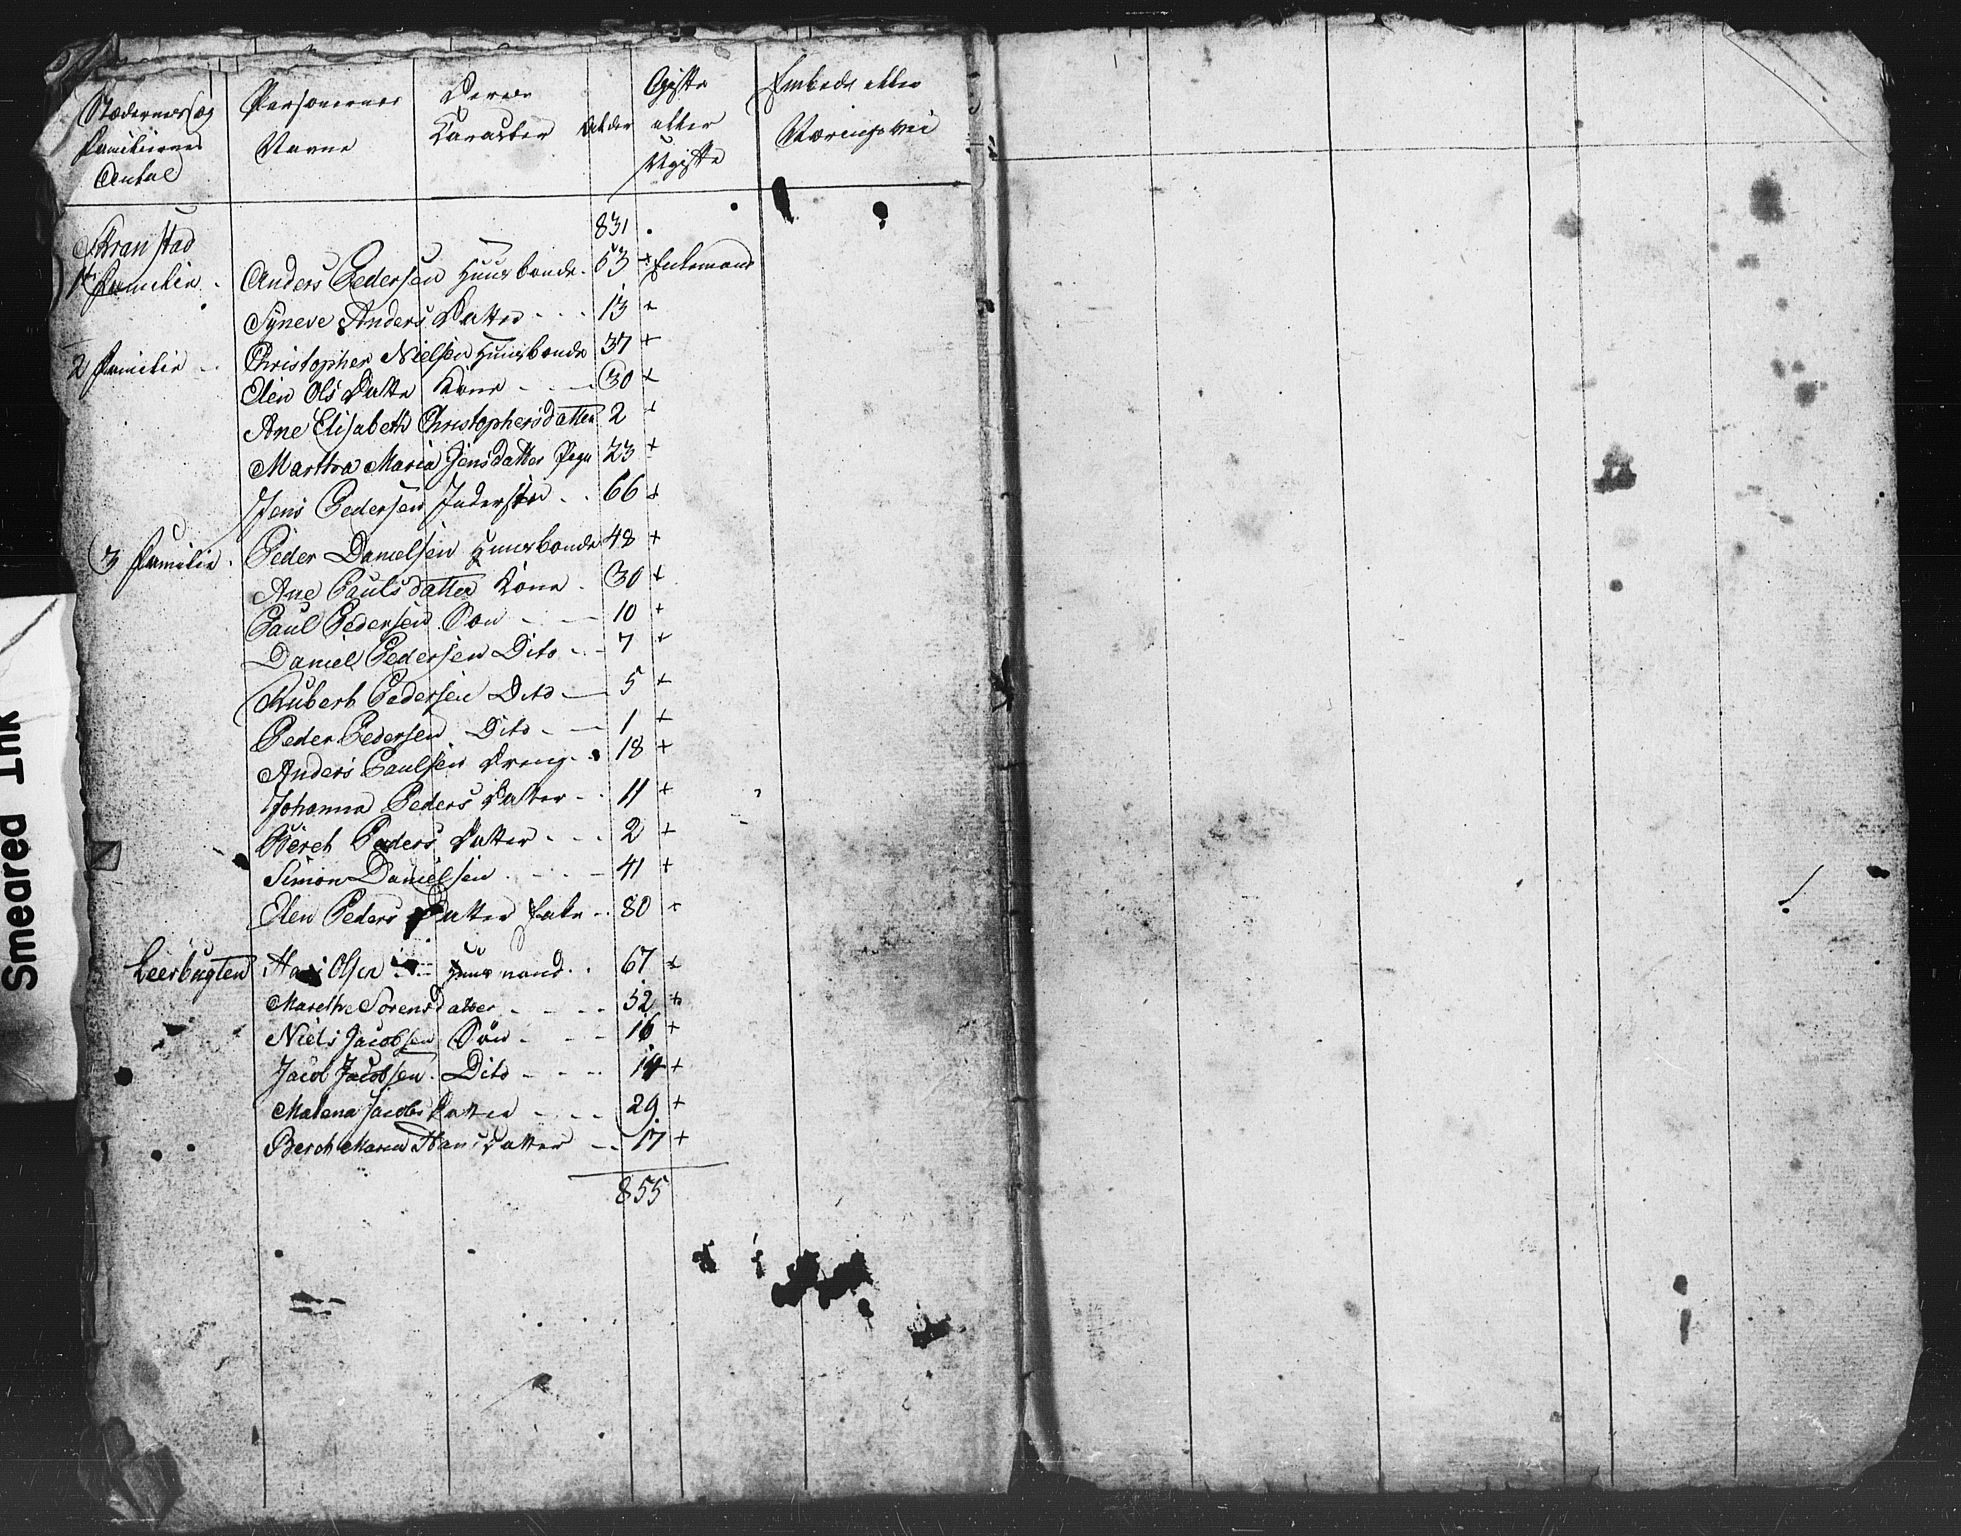 Stædernes og Personernes Deres Alder Gifte Embede eller
Familiernes Navne Karakter eller Næringsvei
Antal Ugifte
831.
Skranstad
1te Familie. Anders Pedersen Huusbonde. 53 + Enkemand
Syneve Anders Datter - - - 13
2 Familie - Christopher Nielsen Huusbonde 37 +
Elen Ols Datter Kone - - - 30 +
Ane Elisabeth Christophersdatter 2 +
Martha Maria Jensdatter Pige 23 +
Jens Pedersen Inderste - . 66 +
3 Familie. Peder Danielsen Huusbonde 48 +
Ane Paulsdatter Kone . 30 +
Paul Pedersen Søn - - 10 +
Daniel Pedersen Dito - - 7 +
Rubert Pedersen Dito - 5 +
Peder Pedersen Dito - - 1 +
Anders Paulsen Dreng - 18 +
Johanna Peders Datter - . 11 +
Berch Peders Datter - - . 2 +
Simon Danielsen - - - - 41 +
Elen Peders Datter - . 80 +
Leerbugten Hans Olsen - - Huusmand . . 67 +
Marethe Sørensdatter - - - - 52 +
Niels Jacobsen Søn - - - 16 +
Jacob Jacobsen. Dito - - - 14 +
Malena Jacobs Datter - - - 29 +
Berch Maria Hans Datter - - 17 +
855
Smeared Ink